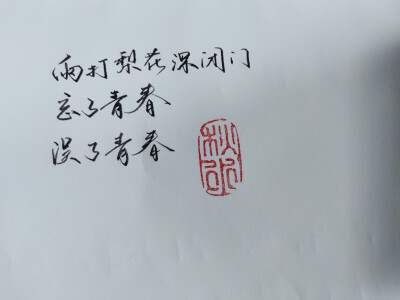 雨打梨花深闭门
忘了青春
误了青春
秋水